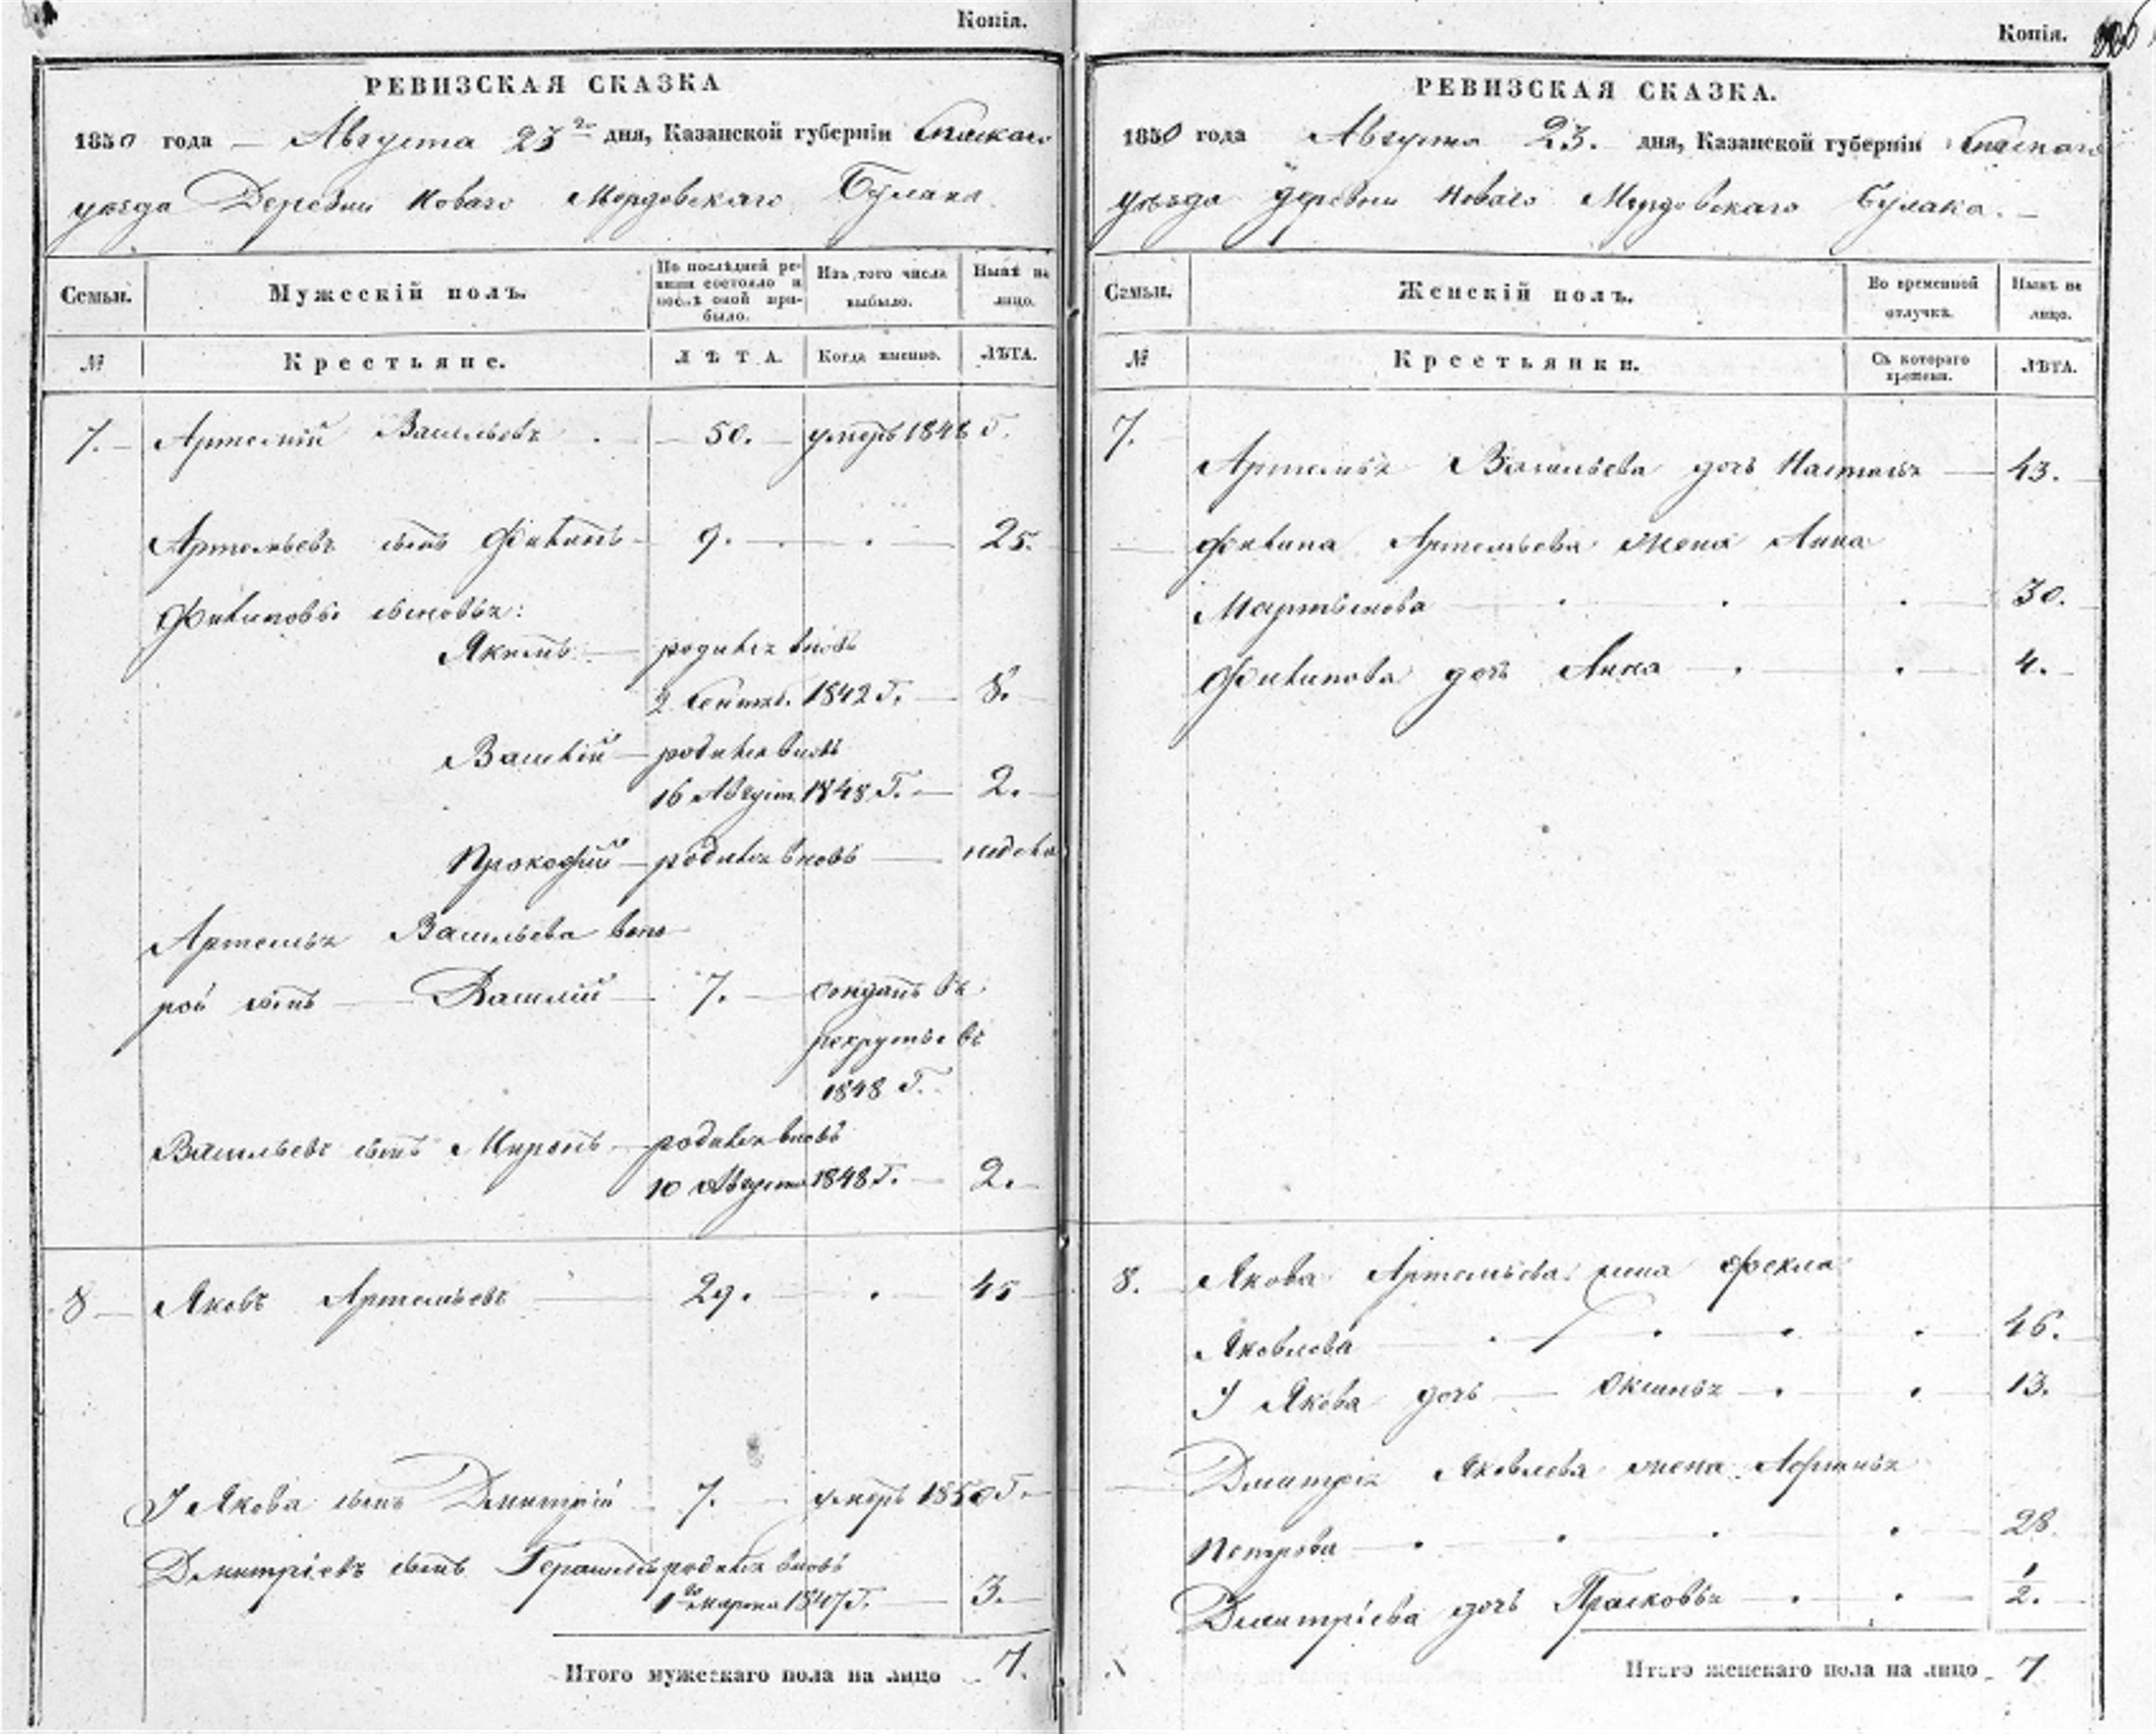 Копія.
РЕВИЗСКАЯ СКАЗКА
1850 года — Августа 23го дня, Казанской губерніи Спаскаго
уѣзда Деревни Новаго Мордовскаго Булака.
Семьи.
Мужескій полъ.
По послѣдней ре-
визіи состояло и
послѣ оной при-
было.
Изъ того числа
выбыло.
Нынѣ на
лицо.
№
Крестьяне.
ЛѢТА.
Когда именно.
ЛѢТА.
7. Артемій Васильевъ 50. умеръ 1848 Г.
Артемьевъ сынъ Филипъ 9. 25.
Филиповы сыновья:
Якимъ родился вновь
2 Сентяб. 1842 Г. 8.
Василій родился вновь
16 Август. 1848 Г. 2.
Прокофій родился вновь недѣля
Артемья Васильева вто
рой сынъ Василій 7. отданъ въ
рекруты въ
1848 Г.
Васильевъ сынъ Миронъ родился вновь
10 Августа 1848 Г. 2.
8 Яковъ Артемьевъ 29. 45
У Якова сынъ Дмитрій 7. умеръ 1850 Г.
Дмитріевъ сынъ Герасимъ родился вновь
1го марта 1847 Г. 3.
Итого мужескаго пола на лицо 7.
Копія.
РЕВИЗСКАЯ СКАЗКА.
1850 года Августа 23. дня, Казанской губерніи Спаскаго
уѣзда деревни Новаго Мордовскаго Булака.
Семьи.
Женскій полъ.
Во временной
отлучкѣ.
Нынѣ на
лицо.
№
Крестьянки.
Съ котораго
времени.
ЛѢТА.
7.
Артемья Васильева дочь Настасья 43.
Филипа Артемьева жена Анна
Мартынова 30.
Филипова дочь Анна 4.
8. Якова Артемьева жена Фекла
Яковлева 46.
У Якова дочь Оксинья 13.
Дмитрія Яковлева жена
Петрова 28
Дмитріева дочь Прасковья 1/2.
Итого женскаго пола на лицо 7